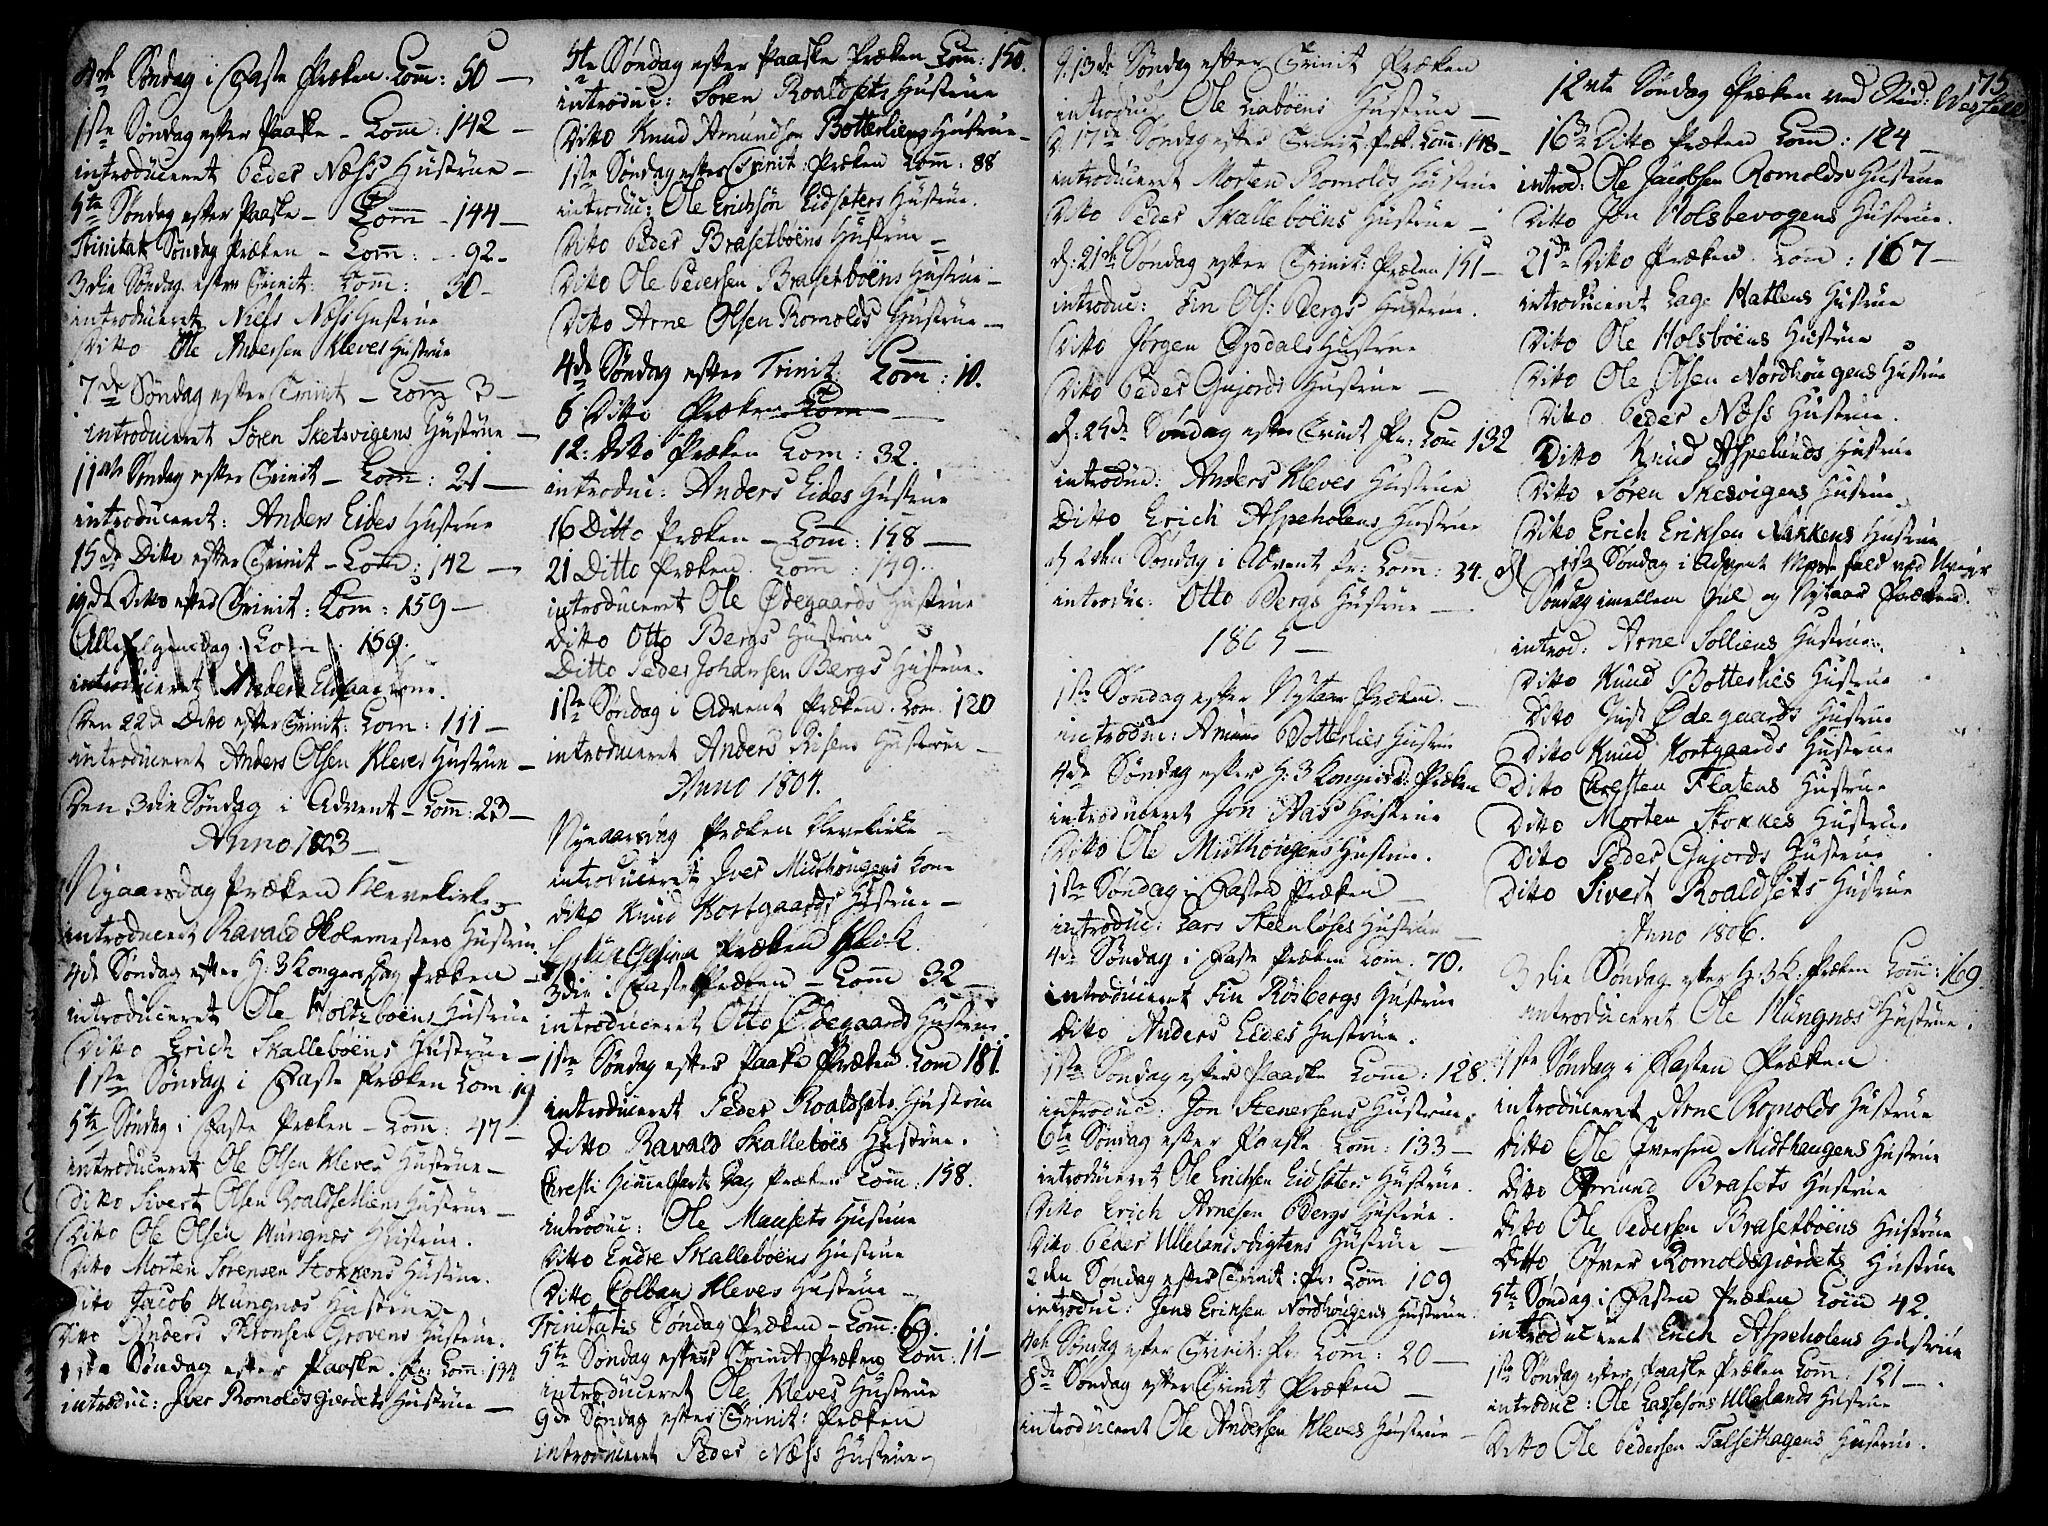 4de Søndag i Faste Præken. Com: 50 —
1ste Søndag efter Paaske — Com: 142 —
introduceret Peder Næss Hustrue —
5te Søndag efter Paaske — Com — 144 —
Trinitat: Søndag Præken — Com: — 92 —
3die Søndag efter Trinit: Com: 30 —
introduceret Niels Næss Hustrue
Ditto Ole Andersen Kleves Hustrue
7de Søndag efter Trinit — Com 3 —
introduceret Søren Sketsvigens Hustrue —
11te Søndag efter Trinit — Com: 21 —
introduceret: Anders Eides Hustrue
15de Ditto efter Trinit — Com: 142 —
19de Ditto efter Trinit: Com: 159 —
Allehelgensdag. Com: 159.
introduceret Anders
Den 22de Ditto efter Trinit: Com: 111 —
introduceret Anders Olsen Kleves Hustrue —
Den 3die Søndag i Advent — Com: 23 —
Anno 1803 —
Nyaarsdag Præken Klevekirke —
introduceret Ravald Skolemesters Hustrue
4de Søndag efter H: 3 Kongers Dag Præken —
introduceret Ole Holtzboens Hustrue
Ditto Erich Skalleboens Hustrue —
1ste Søndag i Faste Præken Com: 19
5te Søndag i Faste Præken — Com: 47 —
introduceret Ole Olsen Kleves Hustrue —
Ditto Sivert Olsen Roaldsetliens Hustrue —
Ditto Ole Olsen Mungnæs Hustrue.
Ditto Morten Sørensen Stokkens Hustrue.
Ditto Jacob Mungnæs Hustrue —
Ditto Anders Grovens Hustrue.
1ste Søndag efter Paaske. Pr: Com: 134
introduc: Iver Romoldsgjerdets Hustrue —
5te Søndag efter Paaske Præken Com: 150.
introduc: Soren Roaldsets Hustrue
Ditto Knud Amundsen Botterliens Hustrue —
1ste Søndag efter Trinit: Præken Com: 88
introduc: Ole Erichsøn Eidsæters Hustrue.
Ditto Peder Brasetboens Hustrue —
Ditto Ole Pedersen Brasetboens Hustrue —
Ditto Arne Olsen Romolds Hustrue —
4de Søndag efter Trinit. Com: 10.
6: Ditto Præken Com —
12: Ditto Præken Com: 32.
introduc: Anders Eides Hustrue
16 Ditto Præken — Com: 158 —
21 Ditto Præken. Com: 149.
introduceret Ole Ødegaards Hustrue
Ditto Otto Bergs Hustrue
Ditto Peder Johansen Bergs Hustrue.
1ste Søndag i Advent Præken. Com. 120
introduceret Anders Risens Hustrue —
Anno 1804.
Nyeaarsdag Præken Klevekirke —
introduceret Iver Midthougens Kone
Ditto Knud Kortgaards Hustrue —
Septuagesima Præken Klevk.
3die i Faste Præken — Com 32 —
introduceret Otto Ødegaard Hustrue.
1ste Søndag efter Paaske Præken Com 181.
introduceret Peder Roaldsets Hustrue
Ditto Ravald Skalleboes Hustrue.
Christi Himmelfarts Dag Præken Com: 158.
introduc: Ole Mausets Hustrue
Ditto Endre Skalleboens Hustrue
Ditto Colban Kleves Hustrue —
Trinitatis Søndag Præken — Com: 69.
5te Søndag efter Trinit Præken Com: 11 —
introduceret Ole Kleves Hustrue
9de Søndag efter Trinit: Præken
introduceret Peder Næss Hustrue
d. 13de Søndag efter Trinit Præken
introduc. Ole Naboens Hustrue —
d. 17de Søndag efter Trinit Præk. Com: 148 —
introduceret Morten Romolds Hustrue
Ditto Peder Skalleboens Hustrue —
d: 21de Søndag efter Trinit: Præken 151 —
introduc: Fin Ols: Bergs Hustrue.
Ditto Jørgen Opdals Hustrue
Ditto Peder Gujords Hustrue —
d: 25de Søndag efter Trinit Pr: Com 132
introduc: Anders Kleves Hustrue
Ditto Erich Aspeholens Hustrue
d. 2den Søndag i Advent Pr: Com: 34.
introduc: Otto Bergs Hustrue —
1805 —
1ste Søndag efter Nytaar Præken. —
introduc: Botterlies Hustrue
4de Søndag efter H: 3 Kongersd: Præken
introduceret Jon Aas Hustrue
Ditto Ole Midthougens Hustrue.
1ste Søndag i Fasten Præken —
introduc: Lars Steenløses Hustrue —
4de Søndag i Faste Præken Com: 70.
introduceret Fin Røsbergs Hustrue
Ditto Anders Eides Hustrue.
1ste Søndag efter Paaske Com: 128.
introduc: Jon Stenersens Hustrue.
6te Søndag efter Paaske Com: 133 —
introduceret Ole Erichsen Eidsæters Hustrue.
Ditto Erich Arnesen Bergs Hustrue.
Ditto Peder Ullelandsvigtens Hustrue —
2den Søndag efter Trinit: Pr: Com 109
introduc: Jens Eriksen Nordhougens Hustrue
4de Søndag efter Trinit: Pr: Com: 20 —
8de Søndag efter Trinit Præken —
introduceret Ole Andersen Kleves Hustrue —
175
12vte Søndag Præken ved Stud: Westfeldt
16de Ditto Præken Com: 124 —
introd: Ole Jacobsen Romolds Hustrue
Ditto Jon Holsbevogens Hustrue.
21de Ditto Præken. Com: 167 —
introduceret Lage Hatlens Hustrue
Ditto Ole Holsboens Hustrue
Ditto Ole Olsen Nordhougens Hustrue
Ditto Peder Næss Hustrue.
Ditto Knud Aspelunds Hustrue
Ditto Søren Skesvigens Hustrue
Ditto Erich Eriksen Nakkens Hustrue
d 1ste Søndag i Advent Messefald ved Uveir
Søndag imellem Jul og Nytaar Præken.
introd. Arne Solliens Hustrue.
Ditto Knud Botterlies Hustrue
Ditto Ødegaards Hustrue
Ditto Knud Kortgaards Hustrue
Ditto Chresten Flatens Hustrue
Ditto Morten Stokkes Hustrue
Ditto Peder Gujords Hustrue
Ditto Sivert Roaldsets Hustrue
Anno 1806.
3die Søndag efter H: 3 K: Præken Com: 169.
introduceret Ole Mungnæs Hustrue.
1ste Søndag i Fasten Præken
introduceret Arne Romolds Hustrue
Ditto Ole Iversen Midthaugens Hustrue
Ditto Brasets Hustrue
Ditto Ole Pedersen Brasetboens Hustrue
Ditto Romoldsgjærdets Hustrue
5te Søndag i Fasten Præken Com 42.
introduceret Erich Aspeholens Hustrue
1ste Søndag efter Paaske Præken Com: 121 —
introduc: Ole Lassesøns Ullelands Hustrue
Ditto Ole Pedersen Talsethagens Hustrue.